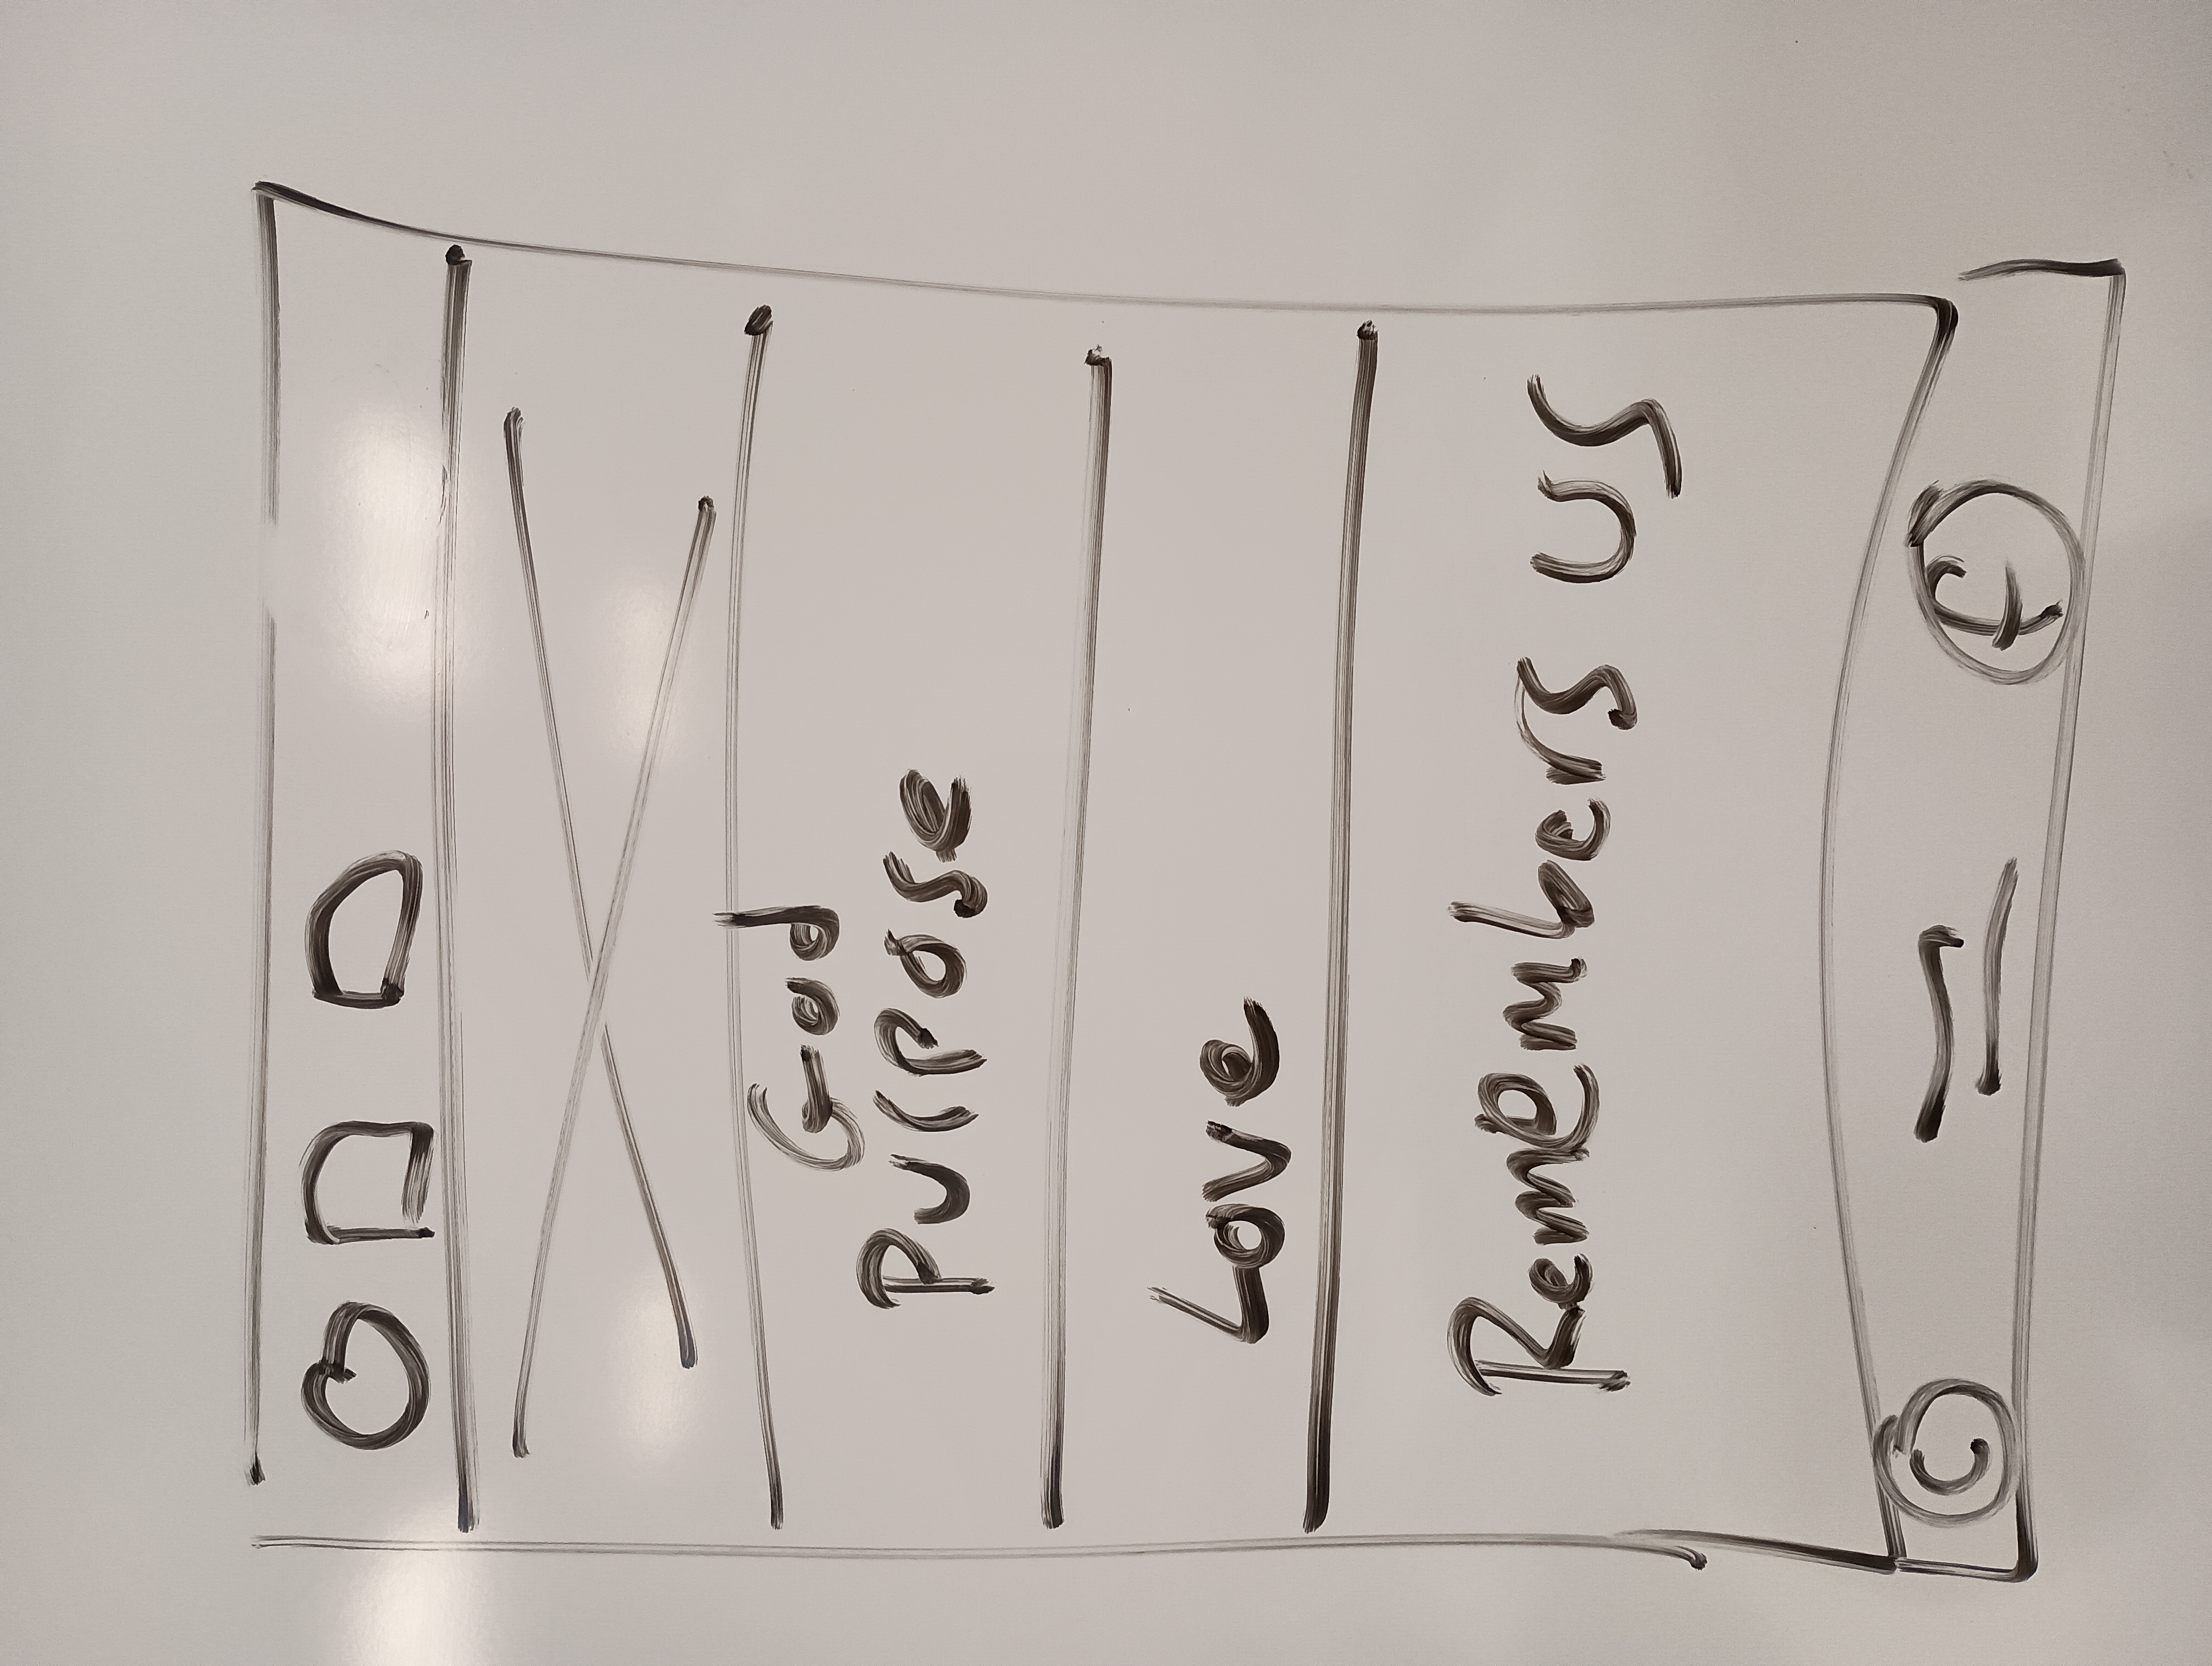 God
Purpose
Love
Remembers us
C
f